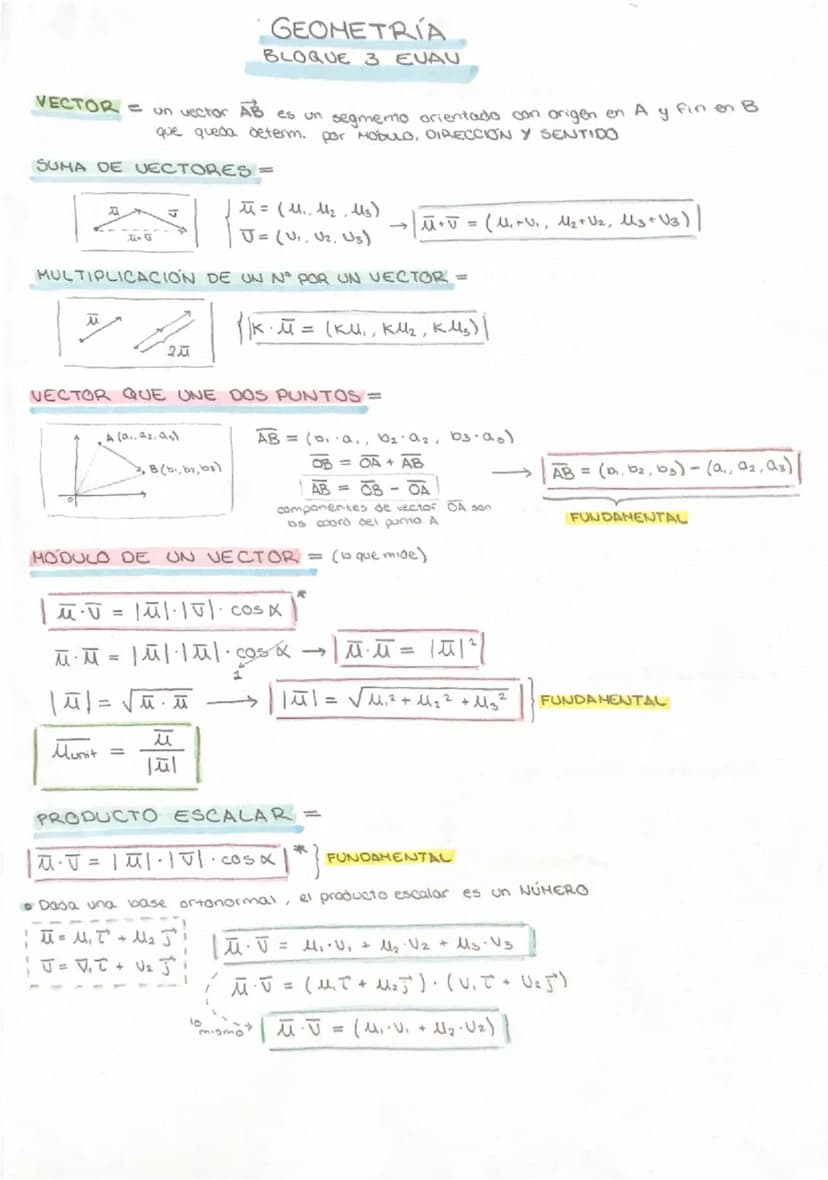 GEOMETRÍA
BLOQUE 3 EVAU
VECTOR = un vector AB⃗ es un segmento orientado con origen en A y fin en B
que queda determ. por MODULO, DIRECCIÓN Y SENTIDO
SUMA DE VECTORES =
u̅ v̅
u̅+v̅
u̅ = (u₁, u₂, u₃)
v̅ = (v₁, v₂, v₃)
→ u̅+v̅ = (u₁+v₁, u₂+v₂, u₃+v₃)
MULTIPLICACIÓN DE UN Nº POR UN VECTOR =
u̅
2u̅
K · u̅ = (Ku₁, Ku₂, Ku₃)
VECTOR QUE UNE DOS PUNTOS =
A (a₁, a₂, a₃)
B (b₁, b₂, b₃)
0
A̅B̅ = (b₁-a₁, b₂-a₂, b₃-a₃)
O̅B̅ = O̅A̅ + A̅B̅
A̅B̅ = O̅B̅ - O̅A̅
componentes de vector O̅A̅ son
las coord del punto A
→ A̅B̅ = (b₁, b₂, b₃) - (a₁, a₂, a₃)
FUNDAMENTAL
MÓDULO DE UN VECTOR = (lo que mide)
u̅ · v̅ = |u̅| · |v̅| · cos α *
u̅ · u̅ = |u̅| · |u̅| · cos α → u̅ · u̅ = |u̅|²
1
|u̅| = √u̅ · u̅ → |u̅| = √u₁² + u₂² + u₃² } FUNDAMENTAL
u̅unit = u̅ / |u̅|
PRODUCTO ESCALAR =
u̅ · v̅ = |u̅| · |v̅| · cos α * } FUNDAMENTAL
• Dada una base ortonormal, el producto escalar es un NÚMERO
u̅ = u₁ i⃗ + u₂ j⃗
v̅ = v₁ i⃗ + v₂ j⃗
u̅ · v̅ = u₁ · v₁ + u₂ · v₂ + u₃ · v₃
u̅ · v̅ = (u₁ i⃗ + u₂ j⃗) · (v₁ i⃗ + v₂ j⃗)
lo mismo → u̅ · v̅ = (u₁ · v₁ + u₂ · v₂)